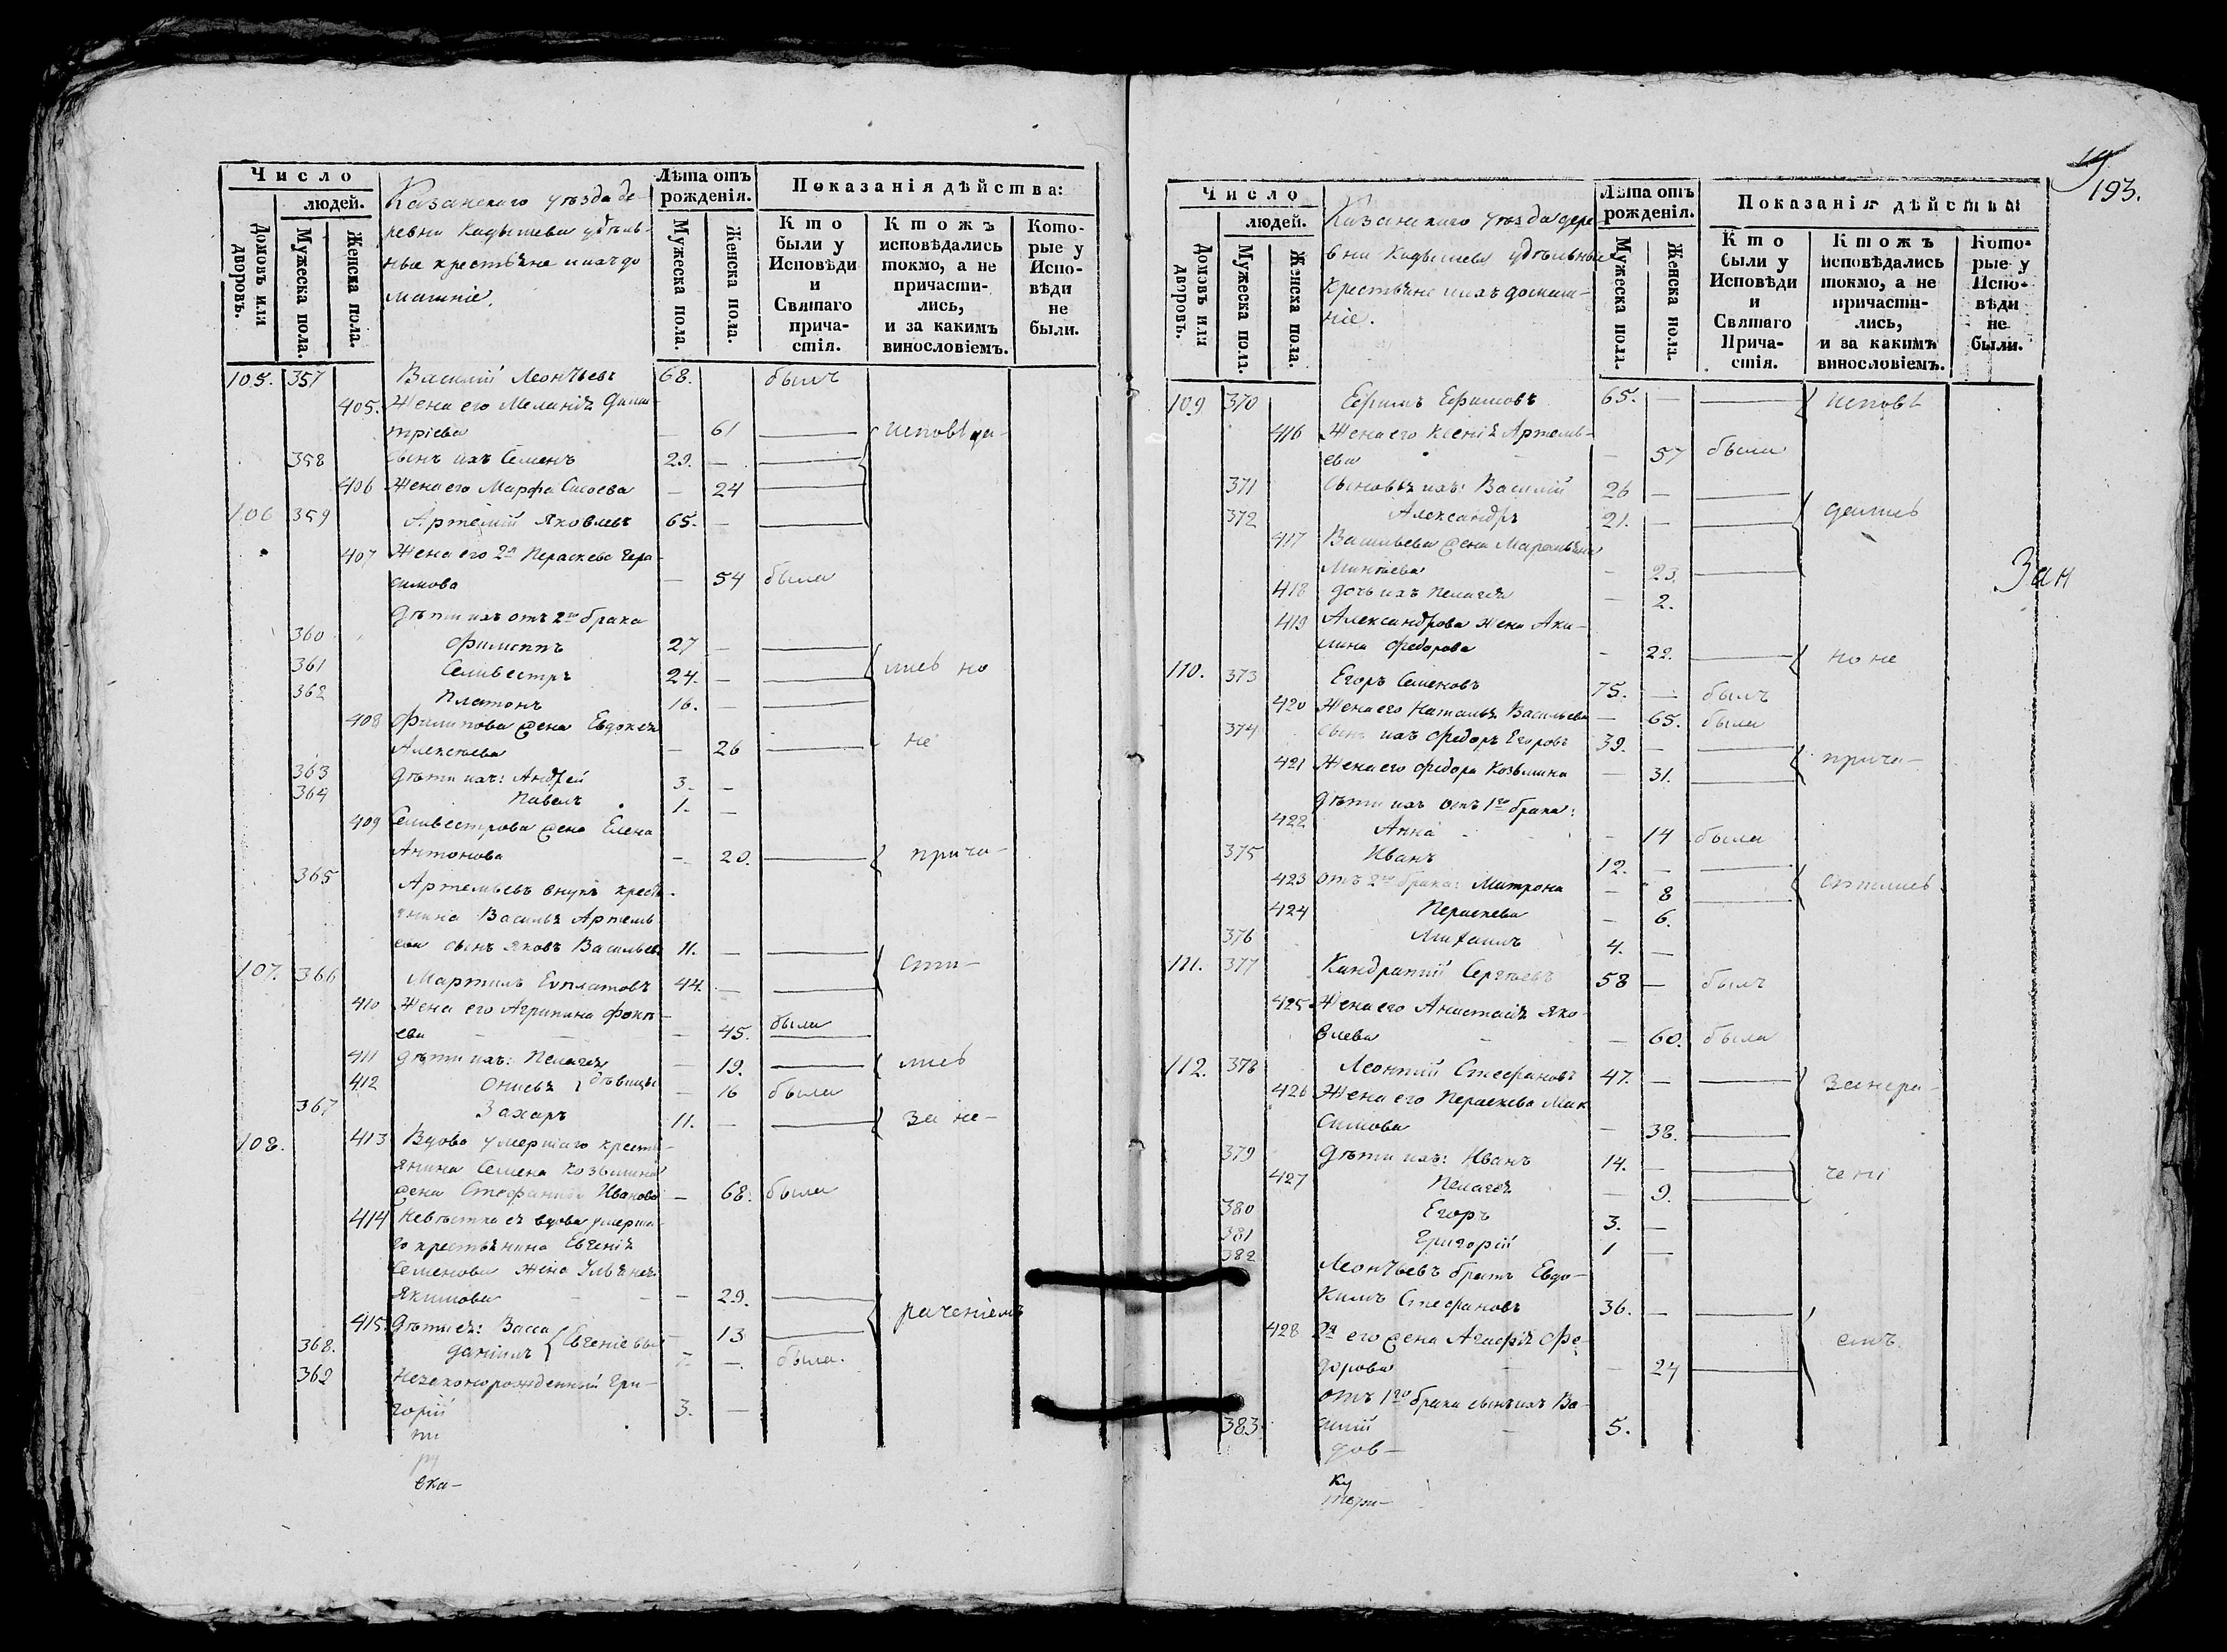 Число
людей.
Домовъ или дворовъ.
Мужеска пола.
Женска пола.
Казанскаго уѣзда де-
ревни Кадышева удѣль-
ные крестьяне и ихъ до
машніе.
Лѣта отъ рожденія.
Мужеска пола.
Женска пола.
Показанія дѣйства:
Кто были у Исповѣди и Святаго прича-стія.
Ктожъ исповѣдались токмо, а не причасти-лись, и за какимъ винословіемъ.
Кото-рые у Испо-вѣди не были.
105. 357 Василій Леонтьевъ 68. былъ
405. Жена его Меланія Дими-
тріева — 61 — исповѣда-
358 сынъ ихъ Семенъ 29. — —
406 Жена его Марфа Сысоева — 24 —
106 359 Артемій Яковлевъ 65. — —
407 Жена его 2я Пераскева Гера-
симова — 54 была
Дѣти ихъ отъ 2го брака
360 Филиппъ 27 — —
361 Селивестръ 24. — — лись но
362 Платонъ 16. — —
408 Филипова жена Евдокея
Алексѣева — 26 — не
363 Дѣти ихъ: Андрей 3. —
364 Павелъ 1. —
409 Селивестрова жена Елена
Антонова — 20. — прича-
365 Артемьевъ внукъ кресть-
янина Василья Артемь
ева сынъ Яковъ Васильевъ 11. — —
107. 366 Мартинъ Евплатовъ 44. — — сти-
410 Жена его Агрипина Фоки-
ева — 45. была
411 Дѣти ихъ: Пелагея — 19. — лись
412 Онисья } дѣвицы — 16 была
367 Захаръ 11. — — за не-
108. 413 Вдова умершаго кресть-
янина Семена Козьмина
жена Стефанида Иванова — 68. была
414 Невѣстка ея вдова умерша-
го крестьянина Евгенія
Семенова жена Ульянея
Якимова — 29. —
415. Дѣти ея: Васса — 13 — раченіемъ
368. Даніилъ { Евгеніевы 7. — были.
369 Незаконорожденный Гри-
горій 3. —
ска-
193.
Число
людей.
Домовъ или дворовъ.
Мужеска пола.
Женска пола.
Казанскаго уѣзда дере
вни Кадышева удѣльные
крестьяне и ихъ домаш-
ніе.
Лѣта отъ рожденія.
Мужеска пола.
Женска пола.
Показанія дѣйства
Кто были у Исповѣди и Святаго Прича-стія.
Ктожъ исповѣдались токмо, а не причасти-лись, и за какимъ винословіемъ.
Кото-рые у Испо-вѣди не были.
109 370 Ефимъ Ефимовъ 65. — — исповѣ
416 Жена его Ксенія Артемь-
ева — 57 была
371 Сыновья ихъ: Василій 26 — —
372 Александръ 21. — — дались
417 Васильева жена
Минѣева — 23. —
418 дочь ихъ Пелагея — 2.
419 Александрова жена Аки-
лина Федорова — 22. — но не
110. 373 Егоръ Семеновъ 75. — былъ
420 Жена его Наталья Васильева — 65. была
374 Сынъ ихъ Федоръ Егоровъ 39. — —
421 Жена его Федора Козьмина — 31. — прича-
Дѣти ихъ отъ 1го брака:
422 Анна — 14 была
375 Иванъ 12. — —
423 отъ 2го брака: Матрона — 8 — стились
424 Пераскева — 6.
376 Михаилъ 4. —
111. 377 Кандратій Сергѣевъ 58 — былъ
425 Жена его Анастасія Яко-
влева — 60. была
112. 378 Леонтій Стефановъ 47. — — за нера-
426 Жена его Пераскева Мак
симова — 38. —
379 Дѣти ихъ: Иванъ 14. — —
427 Пелагея — 9. — чені
380 Егоръ 3. —
381 Григорій 1 —
382 Леонтьевъ братъ Евдо-
кимъ Стефановъ 36. — —
428 2я его жена Агафія Фе-
дорова — 24 — емъ.
отъ 1го брака сынъ ихъ Ва-
383 силій — 5.
дов-
ку
Зан